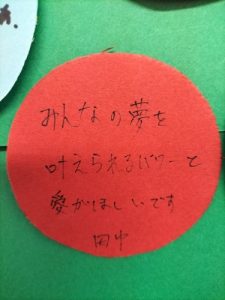 みんなの夢を
叶えられるパワーと
愛がほしいです
田中